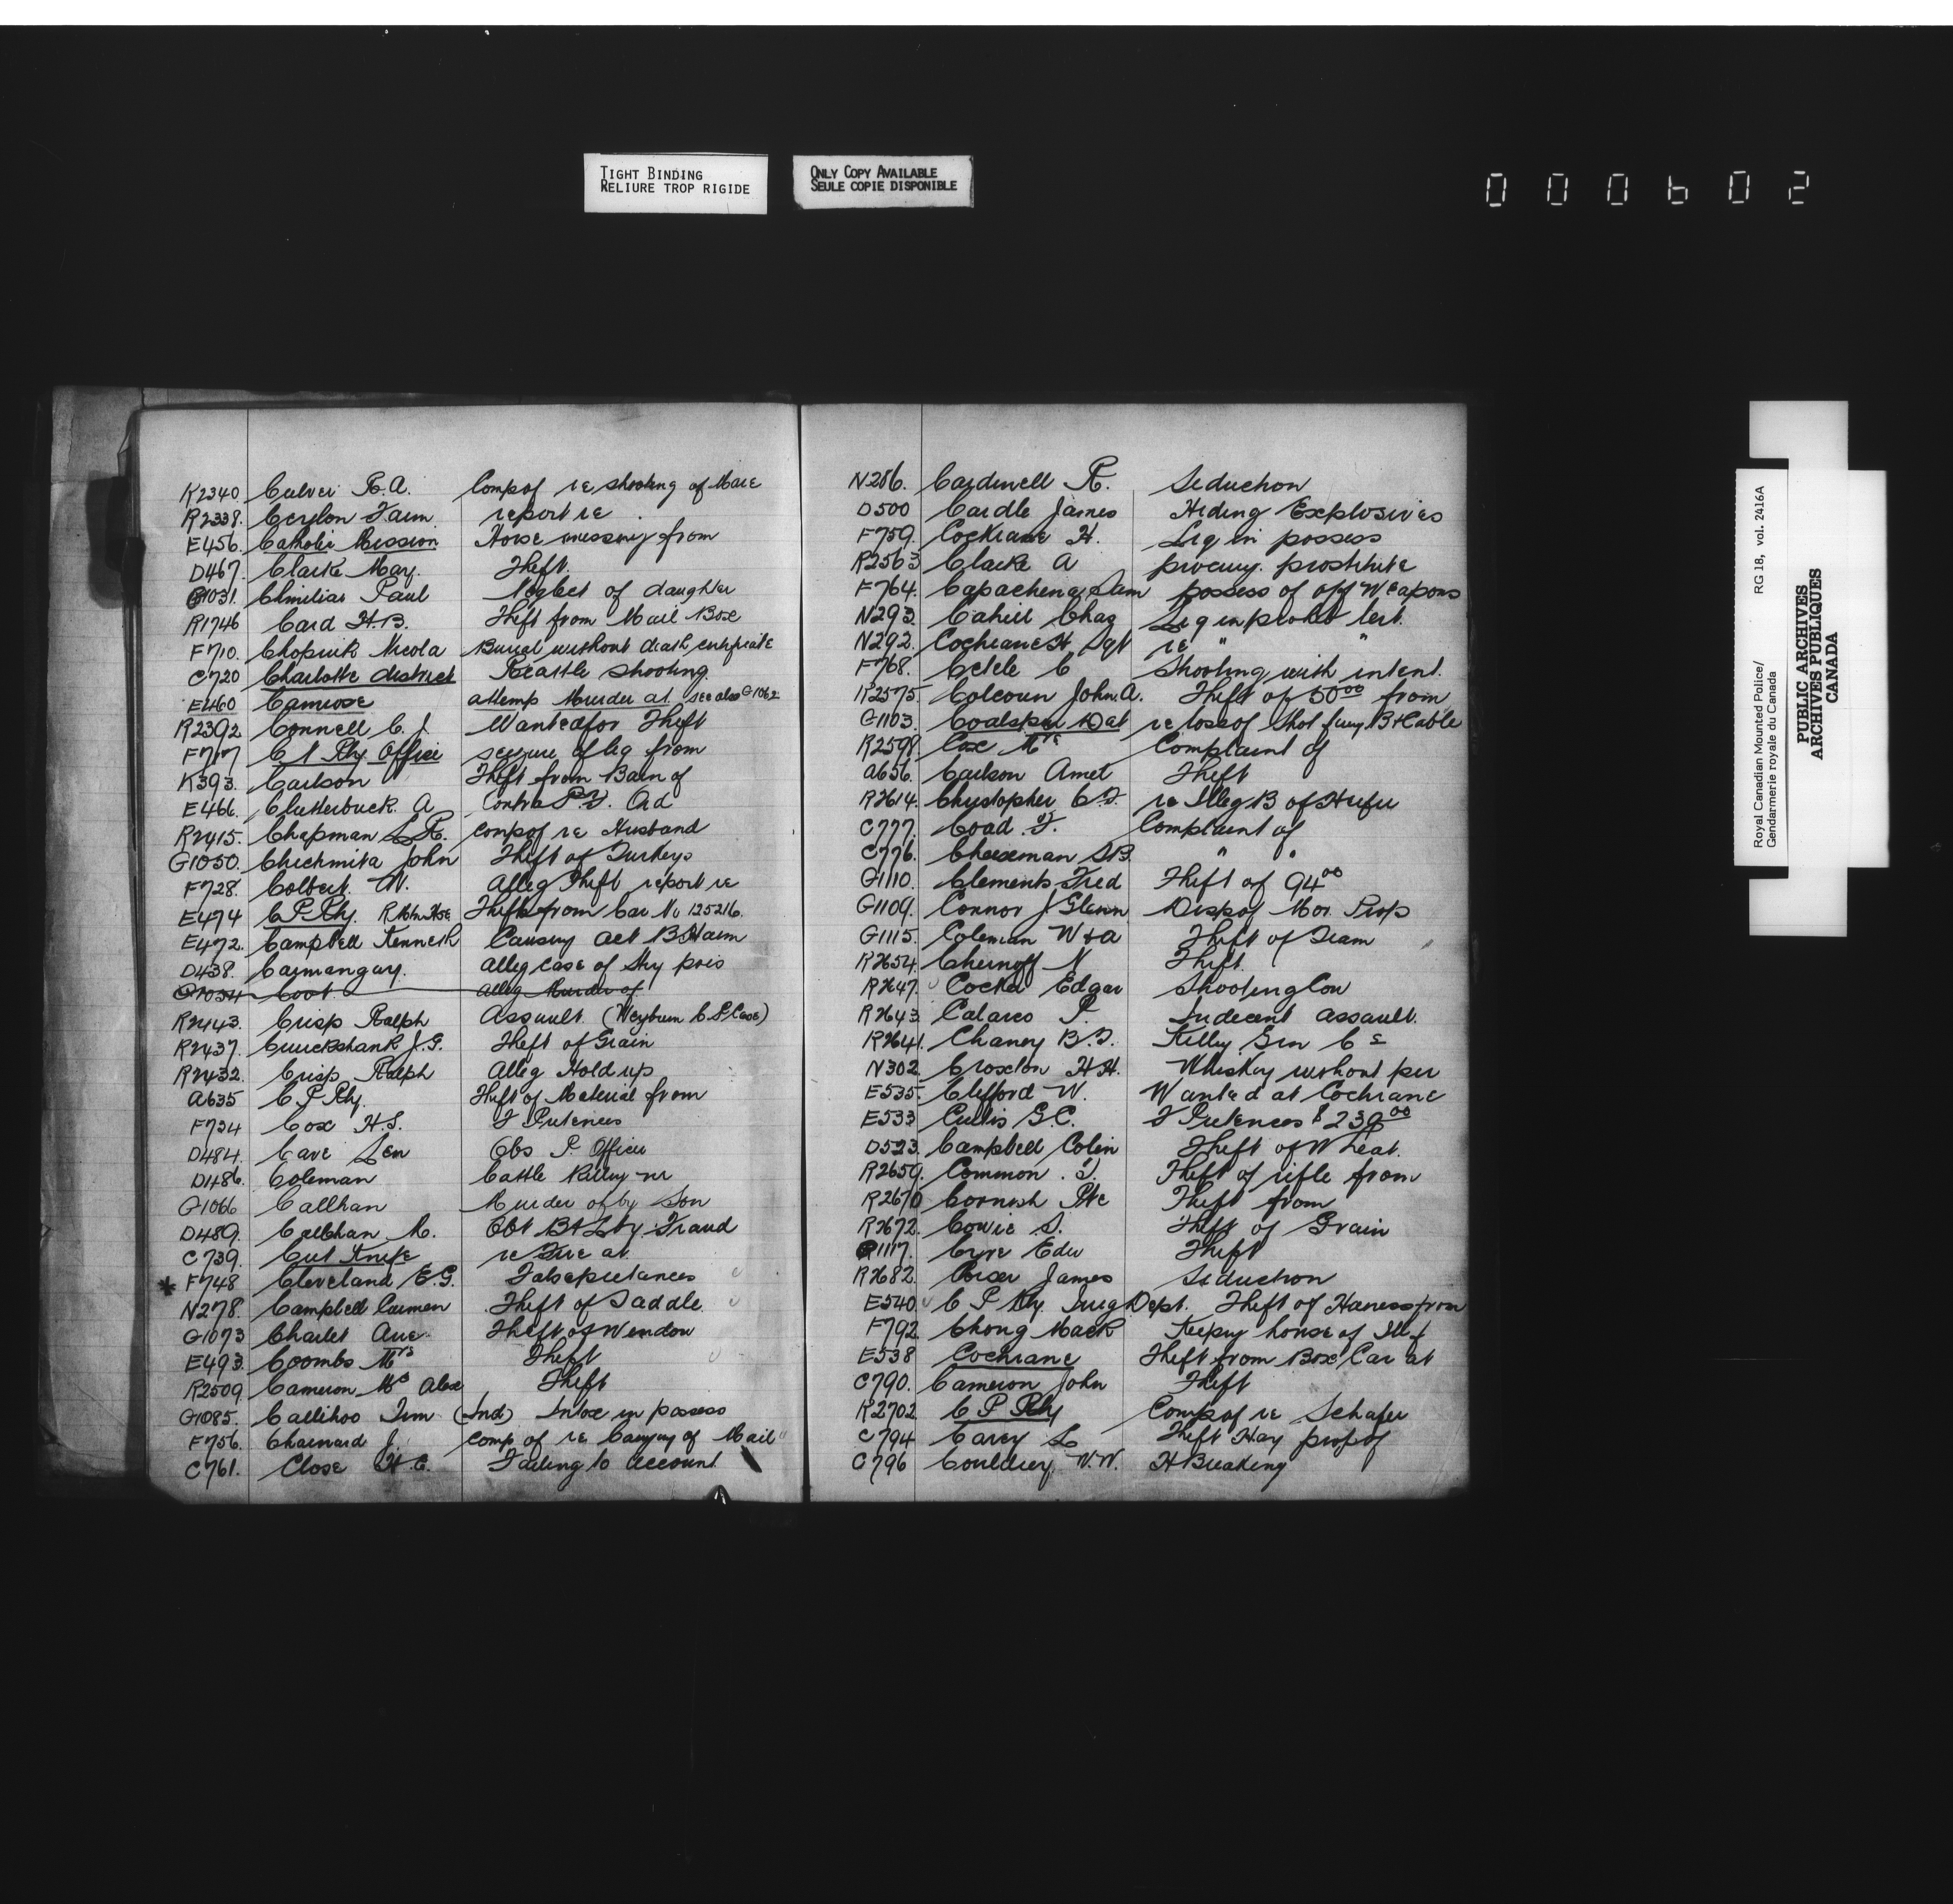 TIGHT BINDING
RELIURE TROP RIGIDE
ONLY COPY AVAILABLE
SEULE COPIE DISPONIBLE
000602
K2340 Culver R.A. Comp of re shooting of Mare
R2338. Ceylon Farm report re
E456. Catholic Mission Horse missing from
D467. Clarke Mary. Theft.
G1031. Chmilias Paul Neglect of daughter
R1746 Card H.B. Theft from Mail Box
F710. Chopnik Nicola Burial without death certificate
C720 Charlotte district Cattle shooting.
E460 Camrose attemp Murder at see also G1062
R2392 Connell C. J. Wanted for Theft
F717 C N Rly. Office seizure of liq from
K393. Carlson Theft from Barn of
E466. Clutterbuck. A Contra P.F. Ord
R2415. Chapman L.R. comp of re Husband
G1050. Chichmita John Theft of Turkeys
F728. Colbert. W. Alleg Theft report re
E474 C P Rly. Theft from Car No 125216.
E472. Campbell Kenneth Causing Act B Harm
D438. Carmangay. alleg case of Stry pois
G1054 Coot alleg Murder of
R2443. Crisp Ralph Assault. (Weyburn C.P. Case)
R2437. Cruickshank J.G. Theft of Grain
R2432. Crisp Ralph Alleg Hold up
A635 C P Rly. Theft of Material from
F734 Cox H.S. F Pretences
D484. Cave Len Obs P. Officer
D486. Coleman Cattle Killing nr
G1066 Callhan Murder of by Son
D489. Callhan M. Obt B & L by Fraud
C739. Cut Knife re Fire at
* F748 Cleveland E.G. False pretances
N278. Campbell Carmen Theft of Saddle
G1073 Charlet Aue Theft of Window
E493. Coombs Mrs Theft
R2509. Cameron Mc Alex Theft
G1085. Callihoo Jim (Ind) Intox in possess
F756. Chainard J. comp of re Carrying of Mail
C761. Close H.C. Failing to account
N286. Cardwell R. Seduction
D500 Cardle James Hiding Explosives
F759. Cochrane H. Liq in possess
R2563 Clarke A procuring prostitute
F764. Capachena, Sam possess of off Weapons
N293. Cahill Chas Liq in prohib terr.
N292. Cochrane H. Sgt re " "
F768. Cekle C Shooting with intent.
R2575. Colcoun John A. Theft of 50⁰⁰ from
G1103. Coalspur Dist re loss of shot firing B & Cable
R2599. Cox Mrs Complaint of
A656. Carlson Amet Theft
R2614. Christopher C.F. re Illeg B of Heifer
C777. Coad. F. Complaint of
C776. Cheeseman S.B. " "
G1110. Clements Fred Theft of 94⁰⁰
G1109. Connor J Glenn Disp of Mor. Prop
G1115. Coleman W & A Theft of Team
R2654. Chernoff N Theft.
R2647. Cocker Edgar Shooting Cow
R2643. Calarco P. Indecent assault.
R2641. Chaney B.F. Killey Grn Co
N302 Croxton H.H. Whiskey without per
E535. Clifford W. Wanted at Cochrane
E533 Curtis G.C. F Pretences $230⁰⁰
D523. Campbell Colin Theft of Wheat.
R2659. Common. J. Theft of rifle from
R2670 Cornish Pte Theft from
R2672. Cowie S. Theft of Grain
G1117. Cyre Edw Theft
R2682. Corser James Seduction
E540 C P Rly. Irrig Dept. Theft of Harness from
F792 Chong Mack Keeping house of Ill f
E538 Cochrane Theft from Box Car at
C790. Cameron John Theft
R2702 C P Rly Comp of re Schafer
C794 Carey L Theft Hay prop of
C796 Couldrey W.W. H Breaking
Royal Canadian Mounted Police/ RG 18, vol. 2416A
Gendarmerie royale du Canada
PUBLIC ARCHIVES
ARCHIVES PUBLIQUES
CANADA